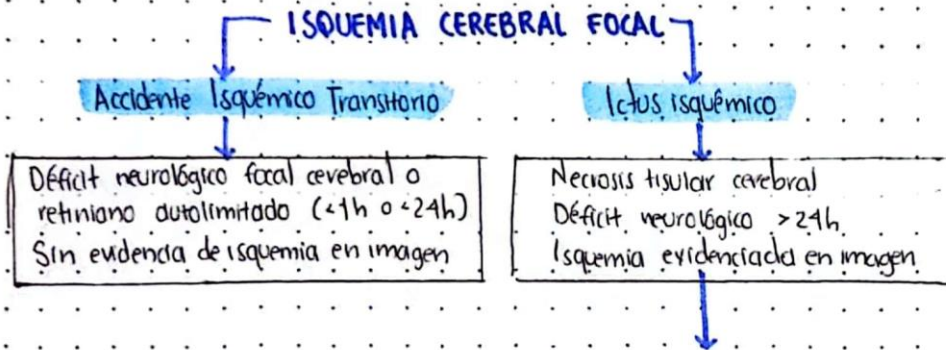 ISQUEMIA CEREBRAL FOCAL
Accidente Isquémico Transitorio
Déficit neurológico focal cerebral o
retiniano autolimitado (<1h o <24h)
Sin evidencia de isquemia en imagen
Ictus isquémico
Necrosis tisular cerebral
Déficit neurológico >24h.
Isquemia evidenciada en imagen